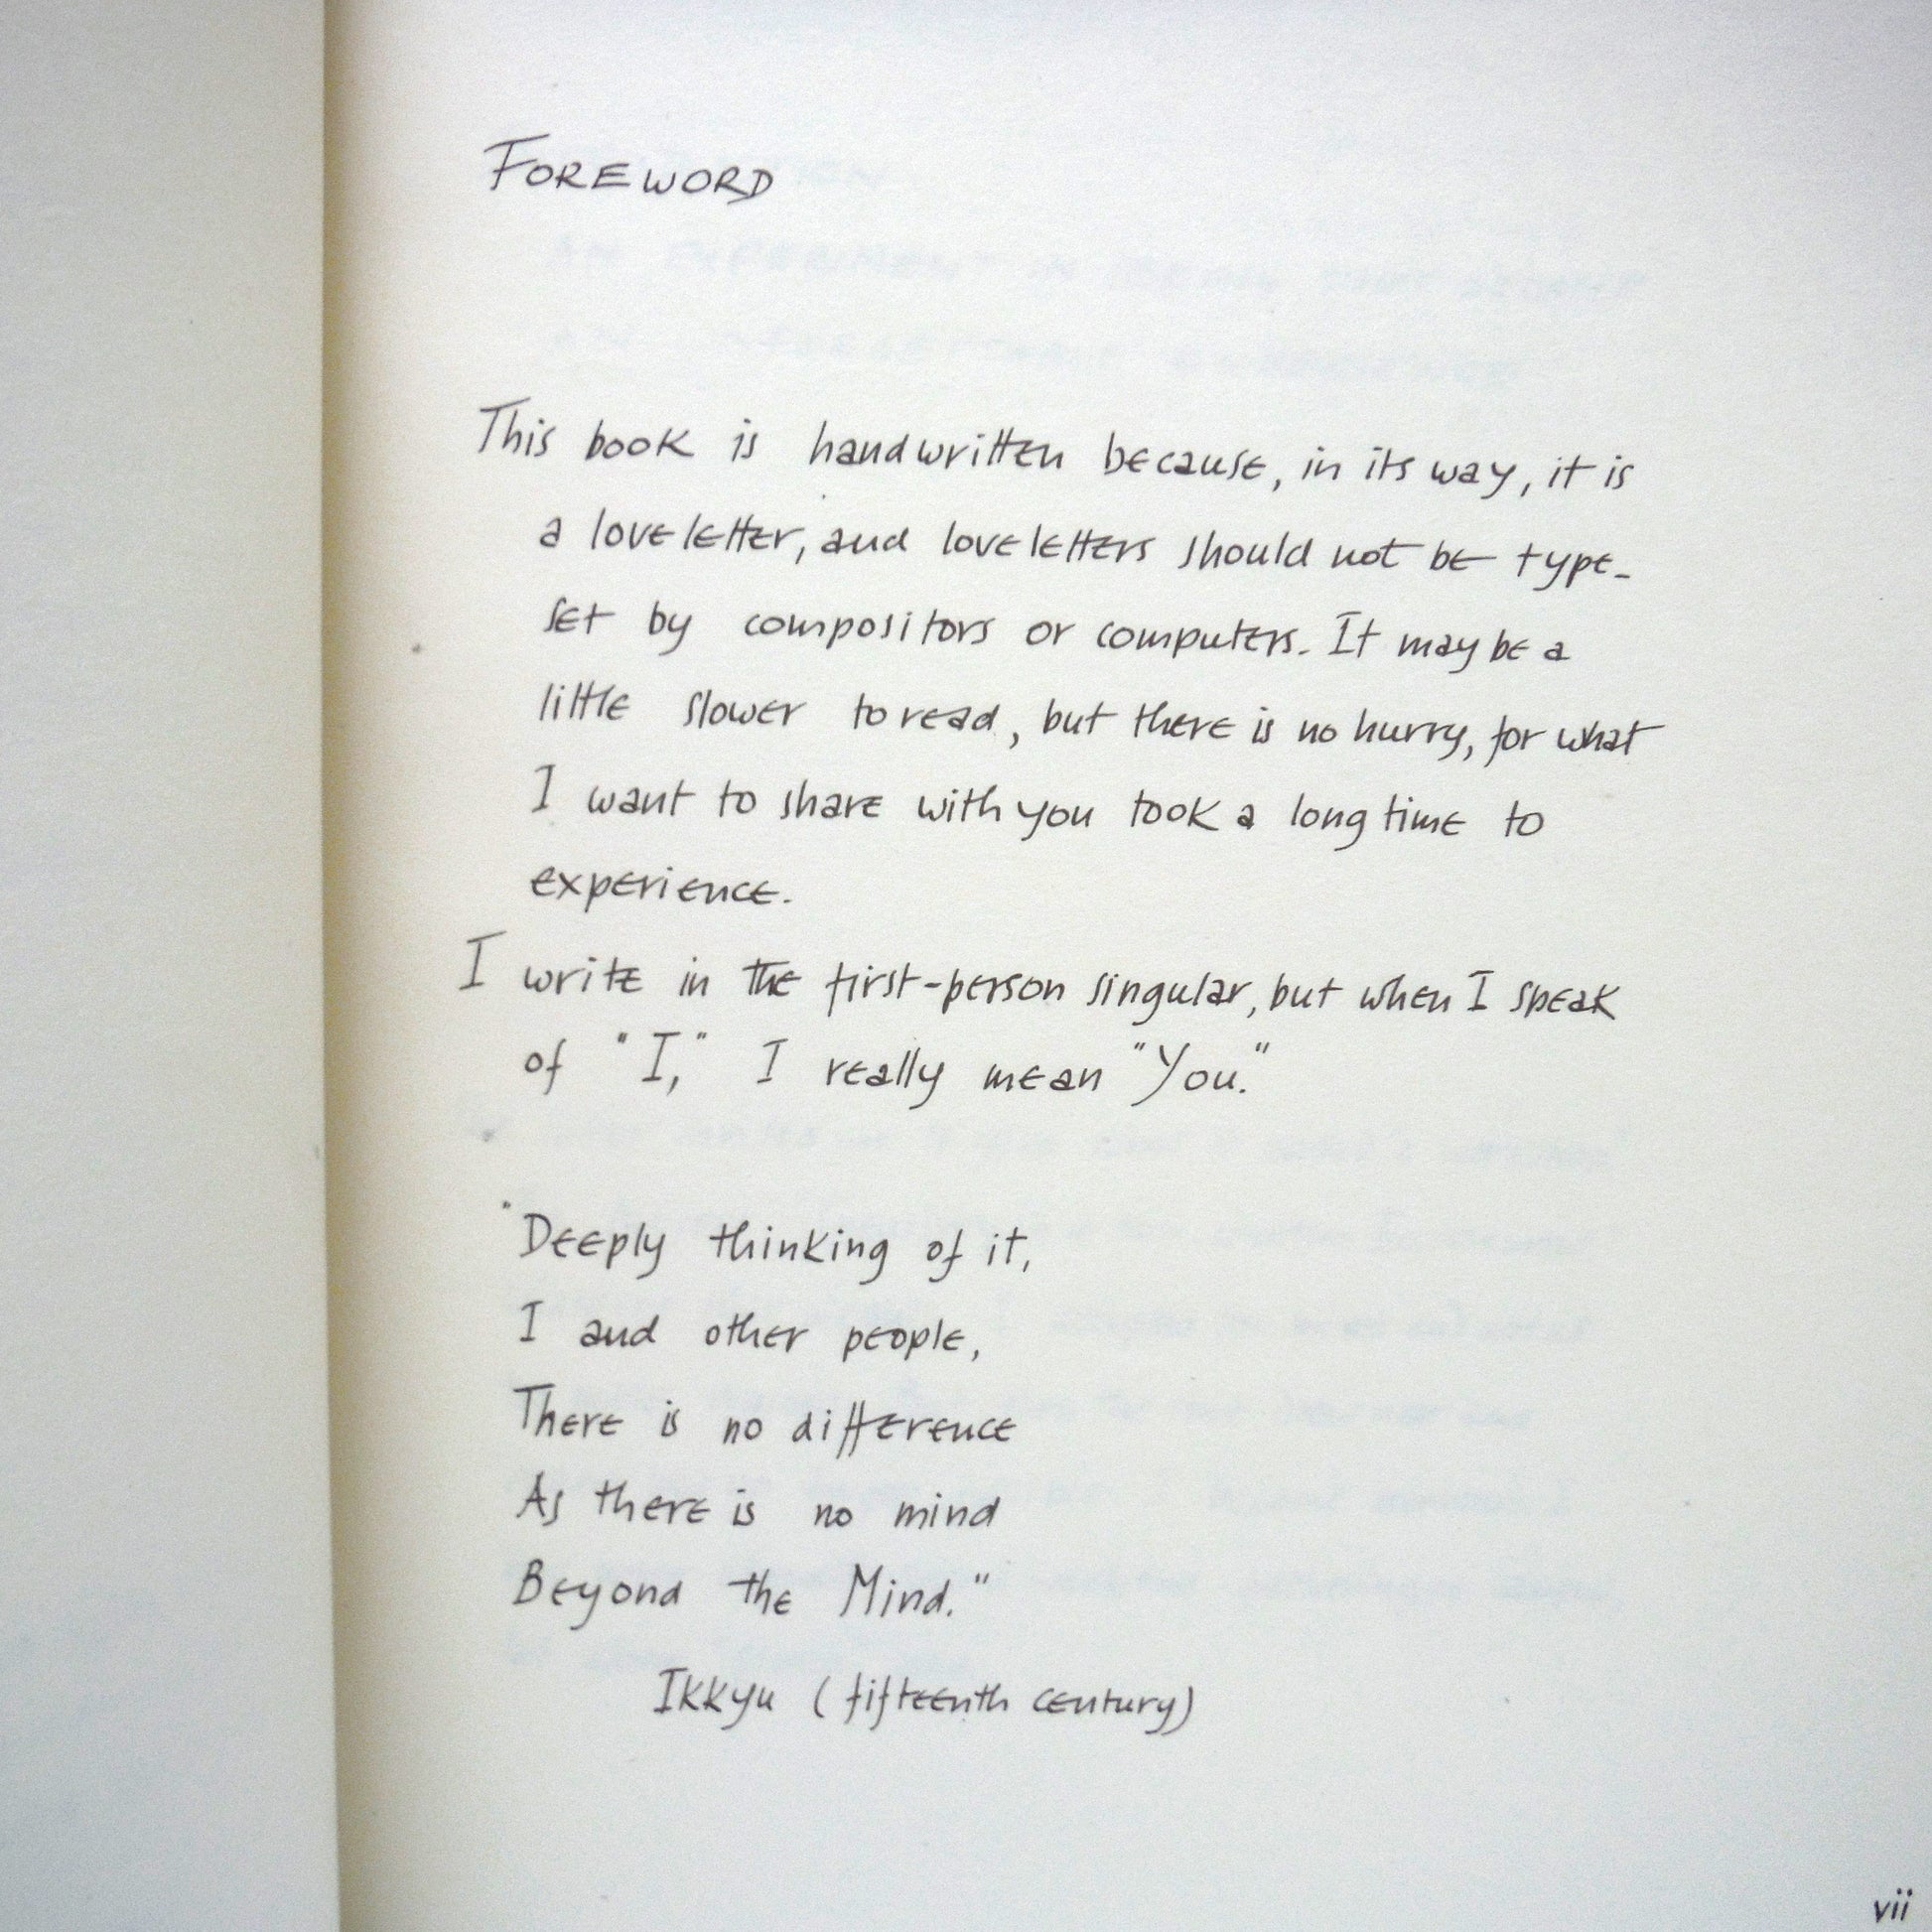 FOREWORD
This book is handwritten because, in its way, it is
a loveletter, and loveletters should not be type-
set by compositors or computers. It may be a
little slower to read, but there is no hurry, for what
I want to share with you took a long time to
experience.
I write in the first-person singular, but when I speak
of "I," I really mean "You."
"Deeply thinking of it,
I and other people,
There is no difference
As there is no mind
Beyond the Mind."
Ikkyu (fifteenth century)
vii